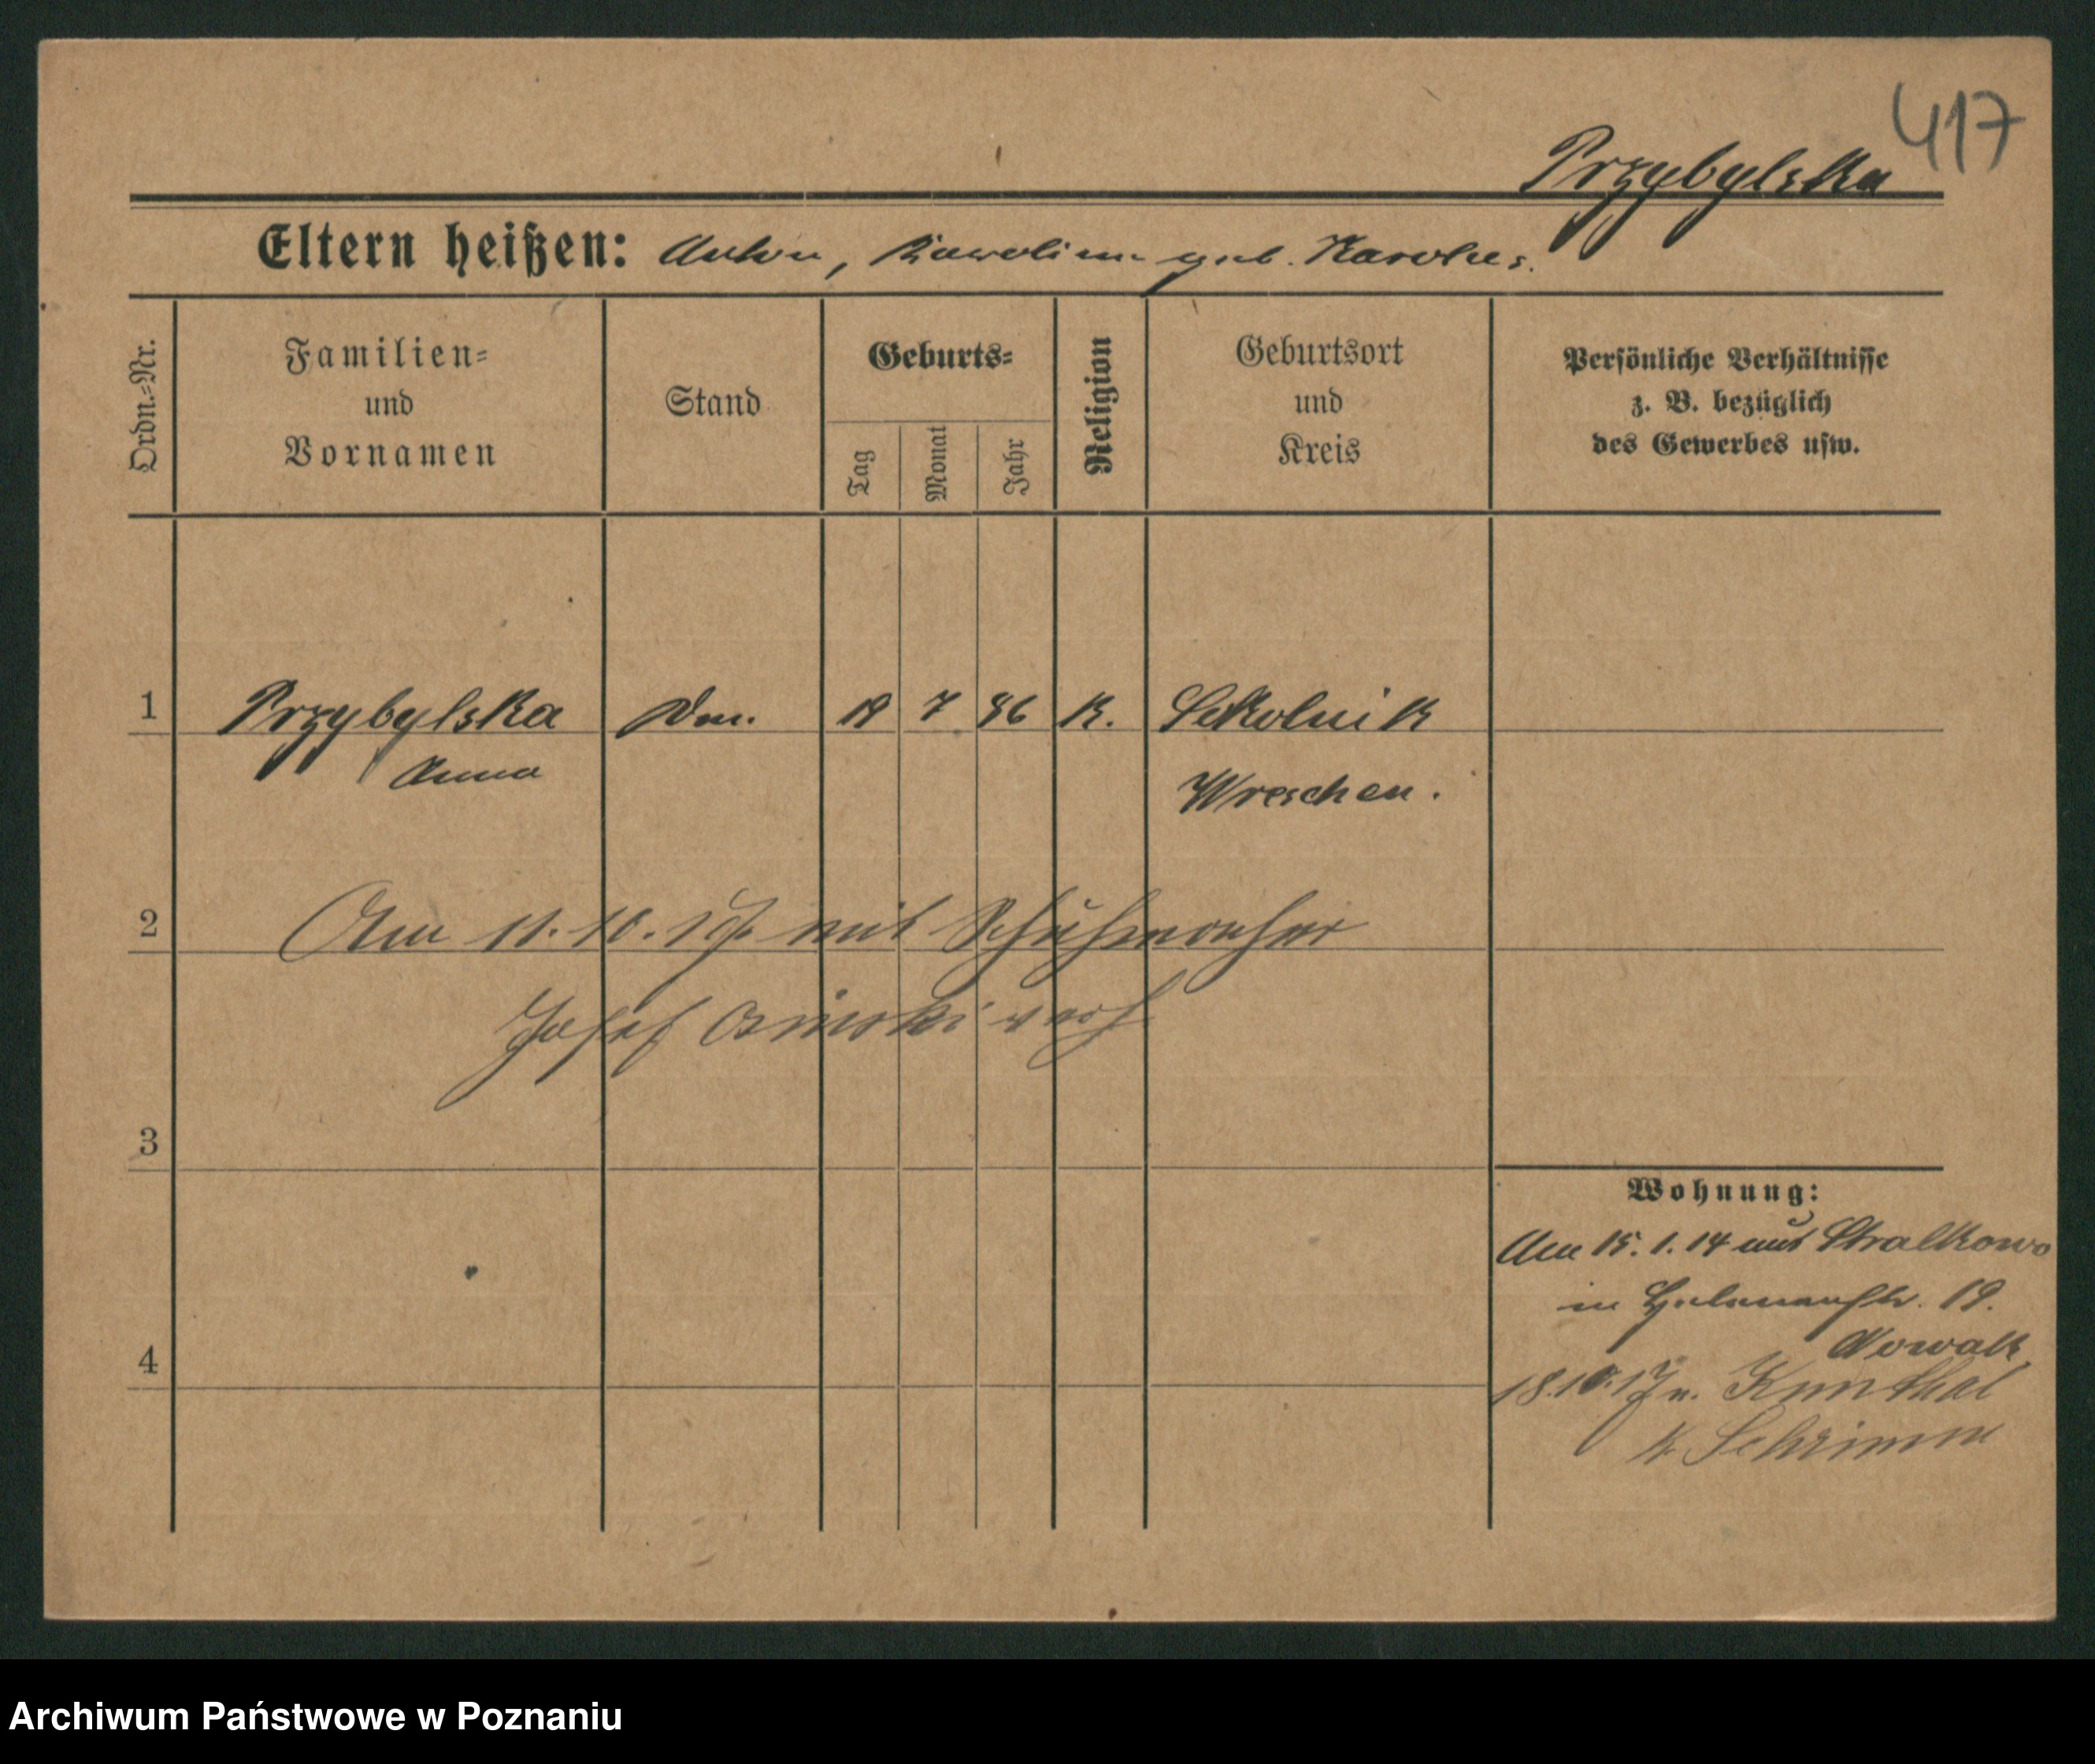 417
Przybylska
Eltern heißen: Anton, Karolina geb. Karolus.
Ordn.-Nr.
Familien-
und
Vornamen
Stand
Geburts-
Tag
Monat
Jahr
Religion
Geburtsort
und
Kreis
Persönliche Verhältnisse
z. B. bezüglich
des Gewerbes usw.
1 Przybylska 19 7 86 K. Sokolnik
Anna
Wreschen.
2 Am 11.10.17 mit Schuhmacher
Josef verh
3
Wohnung:
Am 15.1.14 aus Stralkowo
in 19.
Nowak
4
18.10.17 n.
K. Schrimm
Archiwum Państwowe w Poznaniu